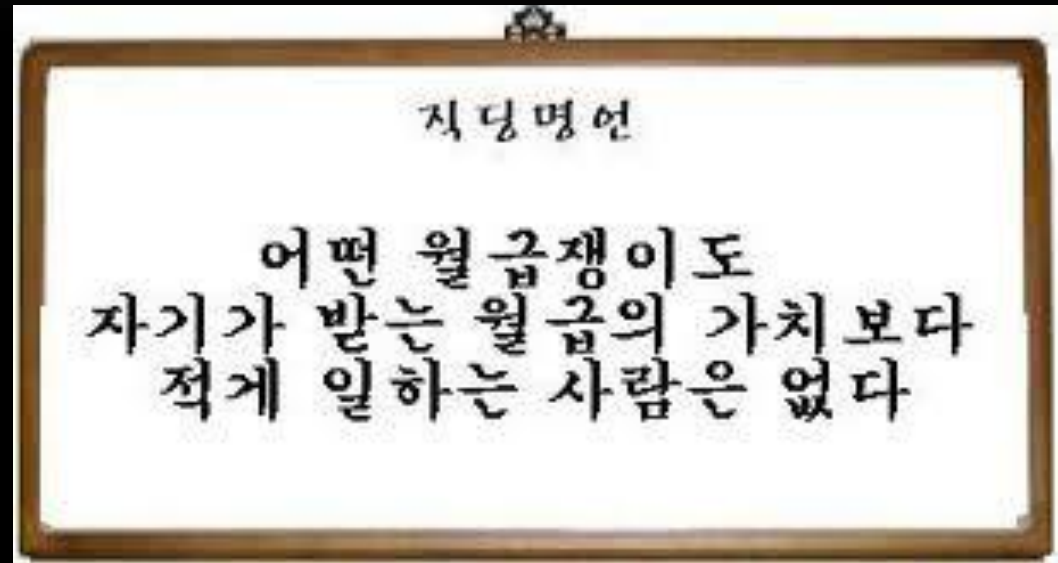 직딩명언
어떤 월급쟁이도
자기가 받는 월급의 가치보다
적게 일하는 사람은 없다